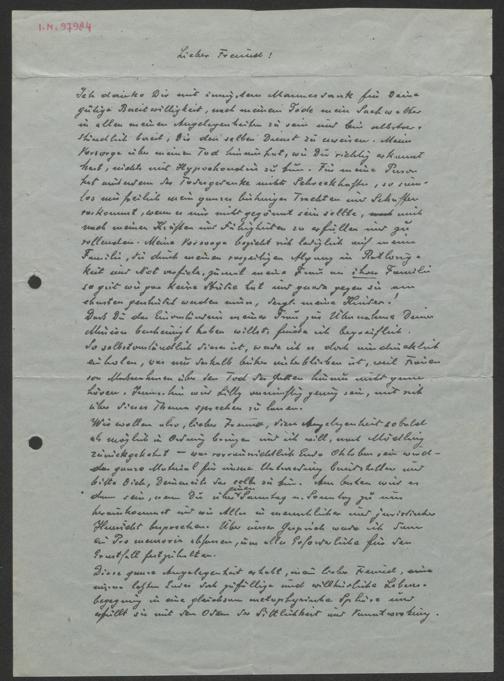 I.N. 97984
Lieber Freund!
Ich danke Dir mit innigstem Mannesdank für Deine
gütige Bereitwilligkeit, nach meinem Tode mein Sachwalter
in allen meinen Angelegenheiten zu sein und bin selbstver-
ständlich bereit, Dir denselben Dienst zu erweisen. Meine
Vorsorge über meinen Tod hinaus hat, wie Du richtig erkannt
hast, nichts mit Hypochondrie zu tun. Für meine Person
hat der Todesgedanke nichts Schreckhaftes, so sinn-
los mir freilich mein ganzes bisheriges Trachten und Schaffen
vorkommt, wenn es mir nicht gegönnt sein sollte, mich
nach meinen Kräften und Fähigkeiten zu erfüllen und zu
vollenden. Meine Vorsorge bezieht sich lediglich auf meine
Familie, die durch meinen vorzeitigen Abgang in Ratlosig-
keit und Not verfiele, zumal meine Frau an ihrer Familie
so gut wie gar keine Stütze hat und gerade gegen sie am
werden müsste, bezgl. meine Kinder!
Dass Du das Einverständnis meiner Frau zur Übernahme Deiner
Mission haben willst, finde ich begreiflich.
So selbstverständlich dieses ist, werde ich es doch ausdrücklich
einholen, was nur deshalb bisher unterblieben ist, weil Frauen
von Massnahmen über den Tod des Gatten hinaus nicht gerne
hören. Immerhin wird Lilly vernünftig genug sein, mit sich
über dieses Thema sprechen zu lassen.
Wir wollen also, lieber Freund, diese Angelegenheit sobald
als möglich in Ordnung bringen und ich will, nach Mödling
zurückgekehrt – was voraussichtlich Ende Oktober sein wird –
das ganze Material für unsere Unterredung bereitstellen und
bitte Dich, Deinerseits dasselbe zu tun. Am besten wird es
dann sein, wenn Du über einen Samstag u. Sonntag zu uns
herauskommst und wir Alles in menschlicher und juristischer
Hinsicht besprechen. Über unser Gespräch werde ich dann
ein Pro memoria abfassen, um alles Erforderliche für den
Ernstfall festzuhalten.
Diese ganze Angelegenheit erhebt, mein lieber Freund, eine
letzten Endes doch zufällige und willkürliche Lebens-
begegnung in eine gleichsam metaphysische Sphäre und
erfüllt sie mit dem Odem der Sittlichkeit und Verantwortung.